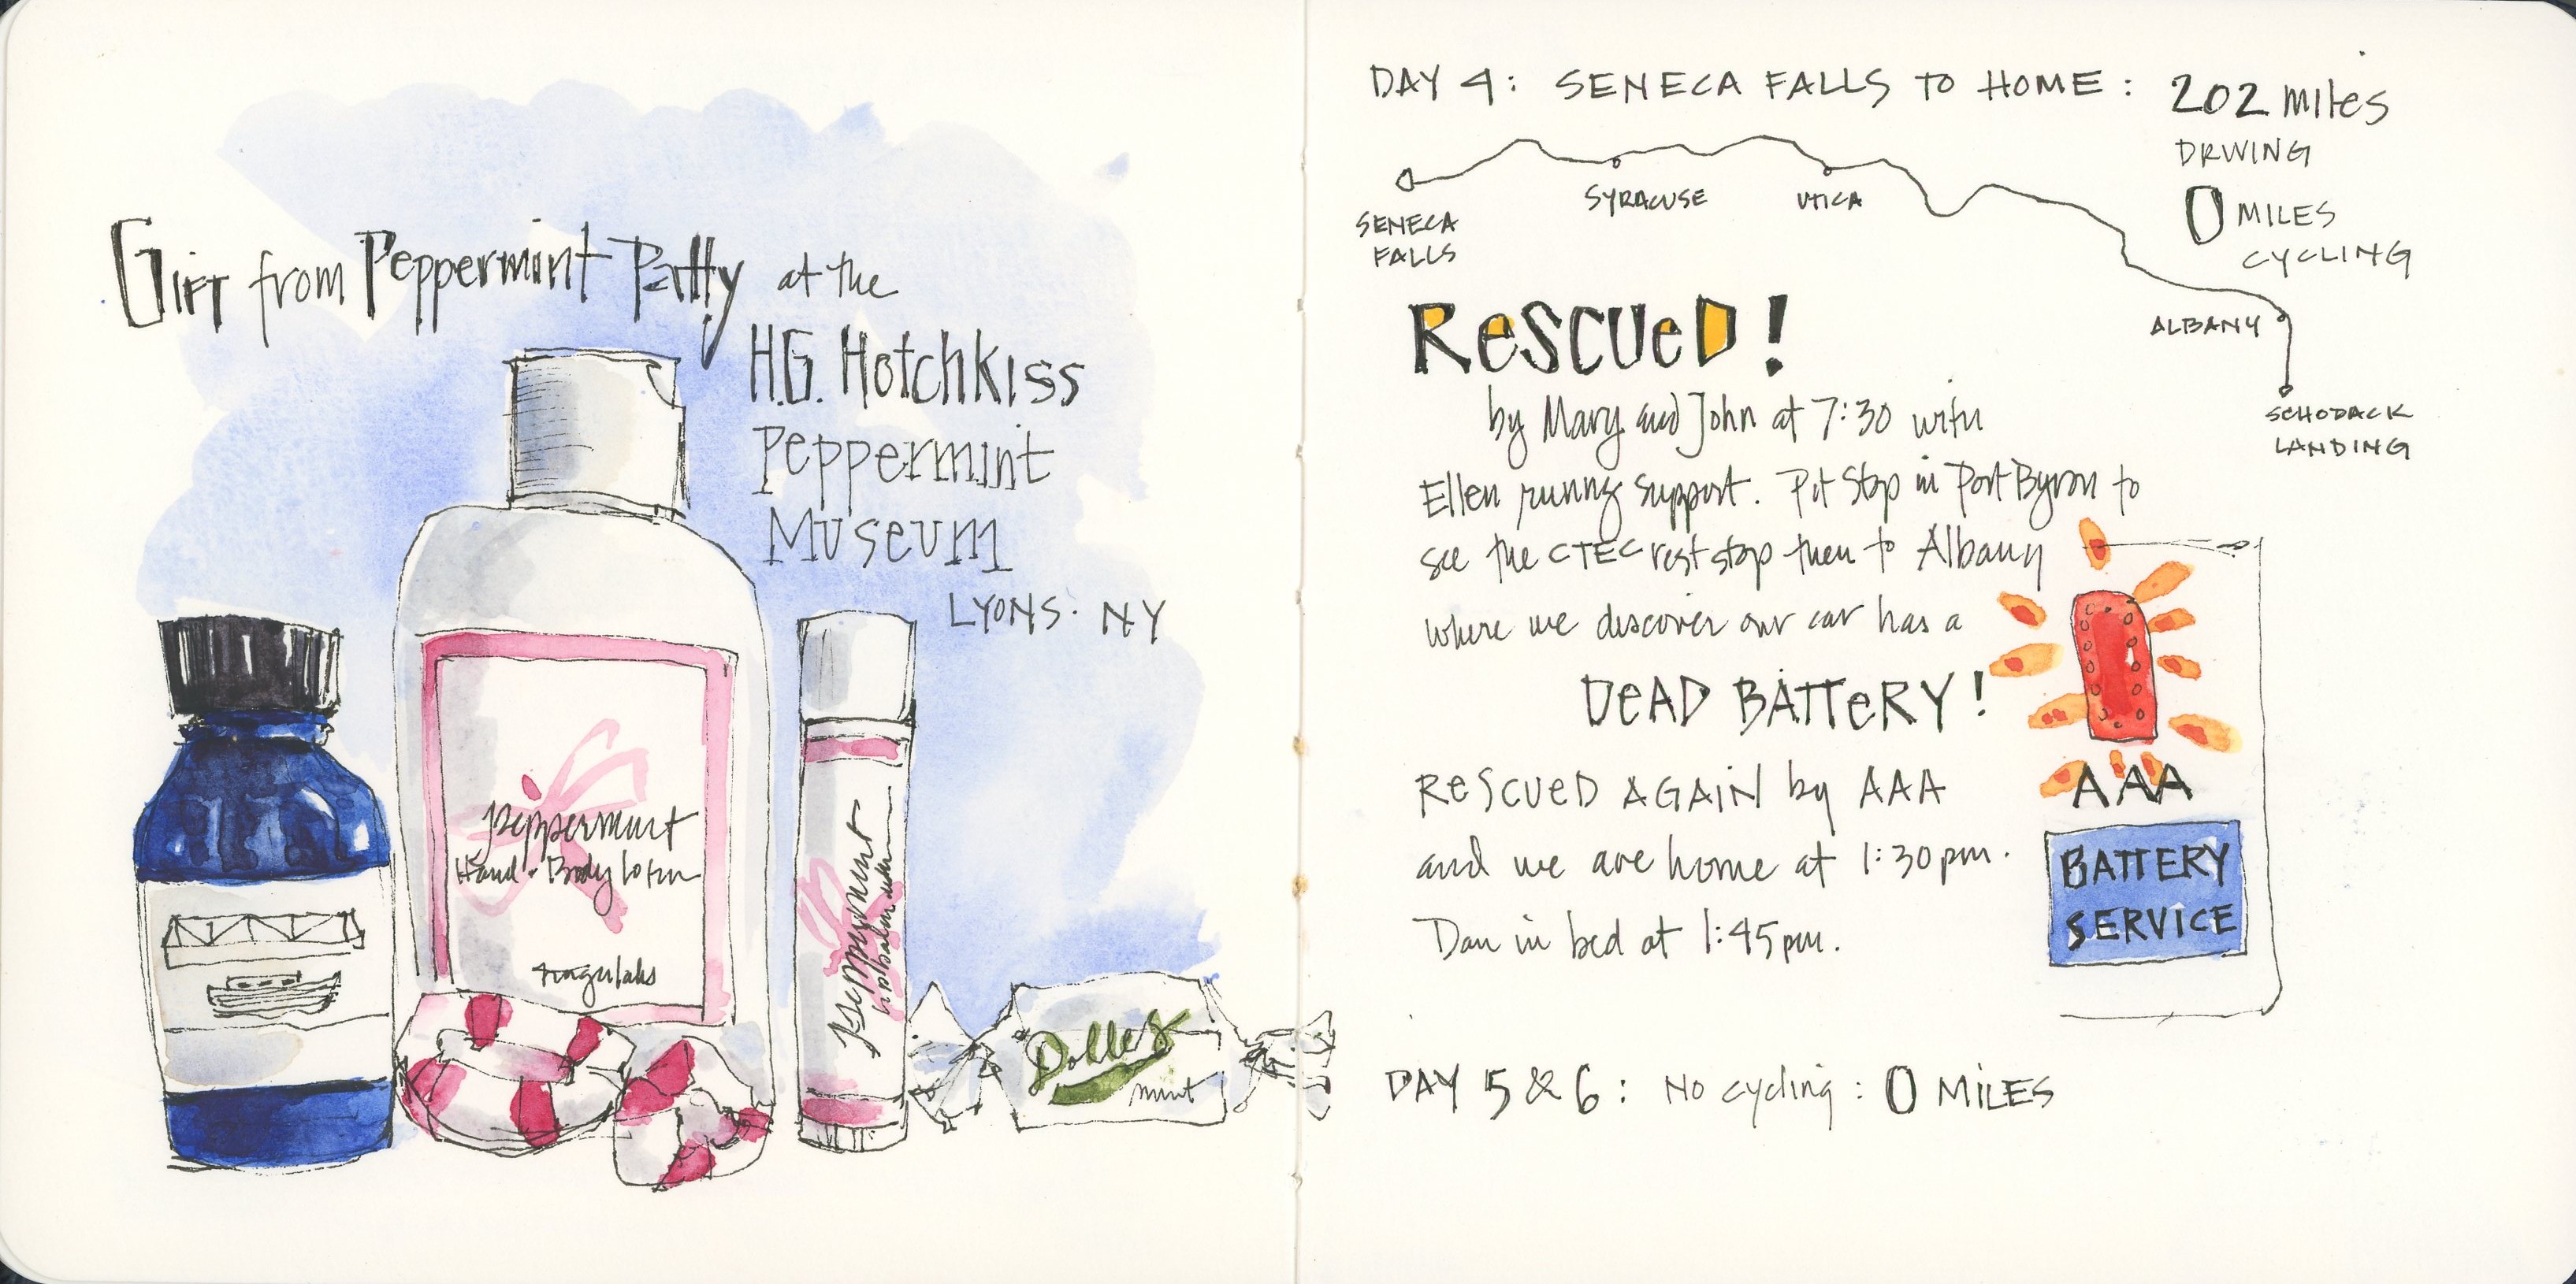 Gift from Peppermint Patty at the
H.G. Hotchkiss
Peppermint
Museum
LYONS. NY
Peppermint
Hand & Body Lotion
Peppermint
lip balm
Dolles
mint
DAY 4: SENECA FALLS TO HOME: 202 miles
DRIVING
0 MILES
CYCLING
SENECA
FALLS
SYRACUSE
UTICA
ALBANY
SCHODACK
LANDING
RESCUED!
by Mary and John at 7:30 with
Ellen running support. Pit Stop in Port Byron to
see the CTEC rest stop then to Albany
where we discover our car has a
DEAD BATTERY!
RESCUED AGAIN by AAA
and we are home at 1:30pm.
Dan in bed at 1:45pm.
AAA
BATTERY
SERVICE
DAY 5 & 6: No cycling: 0 MILES